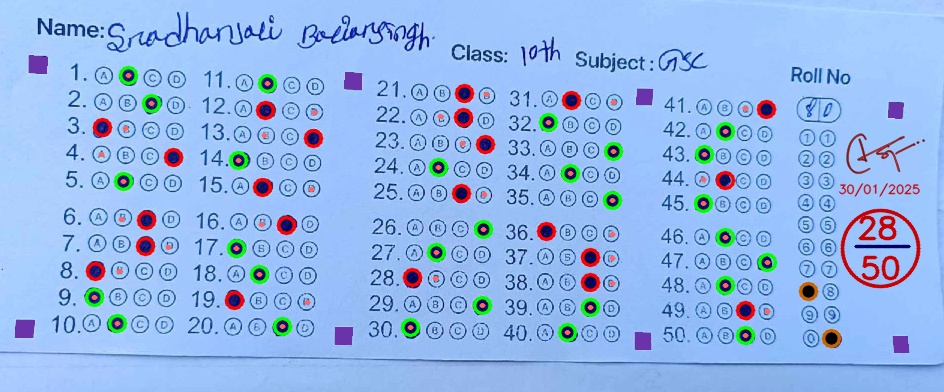 Name: Sradhanjali Baliarsingh.
Class: 10th Subject: GSC
Roll No
80
1. A C D
2. A B D
3. B C D
4. A B C
5. A C D
6. A B D
7. A B D
8. B C D
9. B C D
10. A C D
11. A C D
12. A C D
13. A B C
14. B C D
15. A C D
16. A B D
17. B C D
18. A C D
19. B C D
20. A B D
21. A B D
22. A B D
23. A B C
24. A C D
25. A B D
26. A B C
27. A C D
28. B C D
29. A B C
30. B C D
31. A C D
32. B C D
33. A B C
34. A C D
35. A B C
36. B C D
37. A B D
38. A B D
39. A B D
40. A C D
41. A B C
42. A C D
43. B C D
44. A C D
45. B C D
46. A C D
47. A B C
48. A C D
49. A B D
50. A B D
1 1
2 2
3 3
4 4
5 5
6 6
7 7
8
9 9
0
30/01/2025
28
50